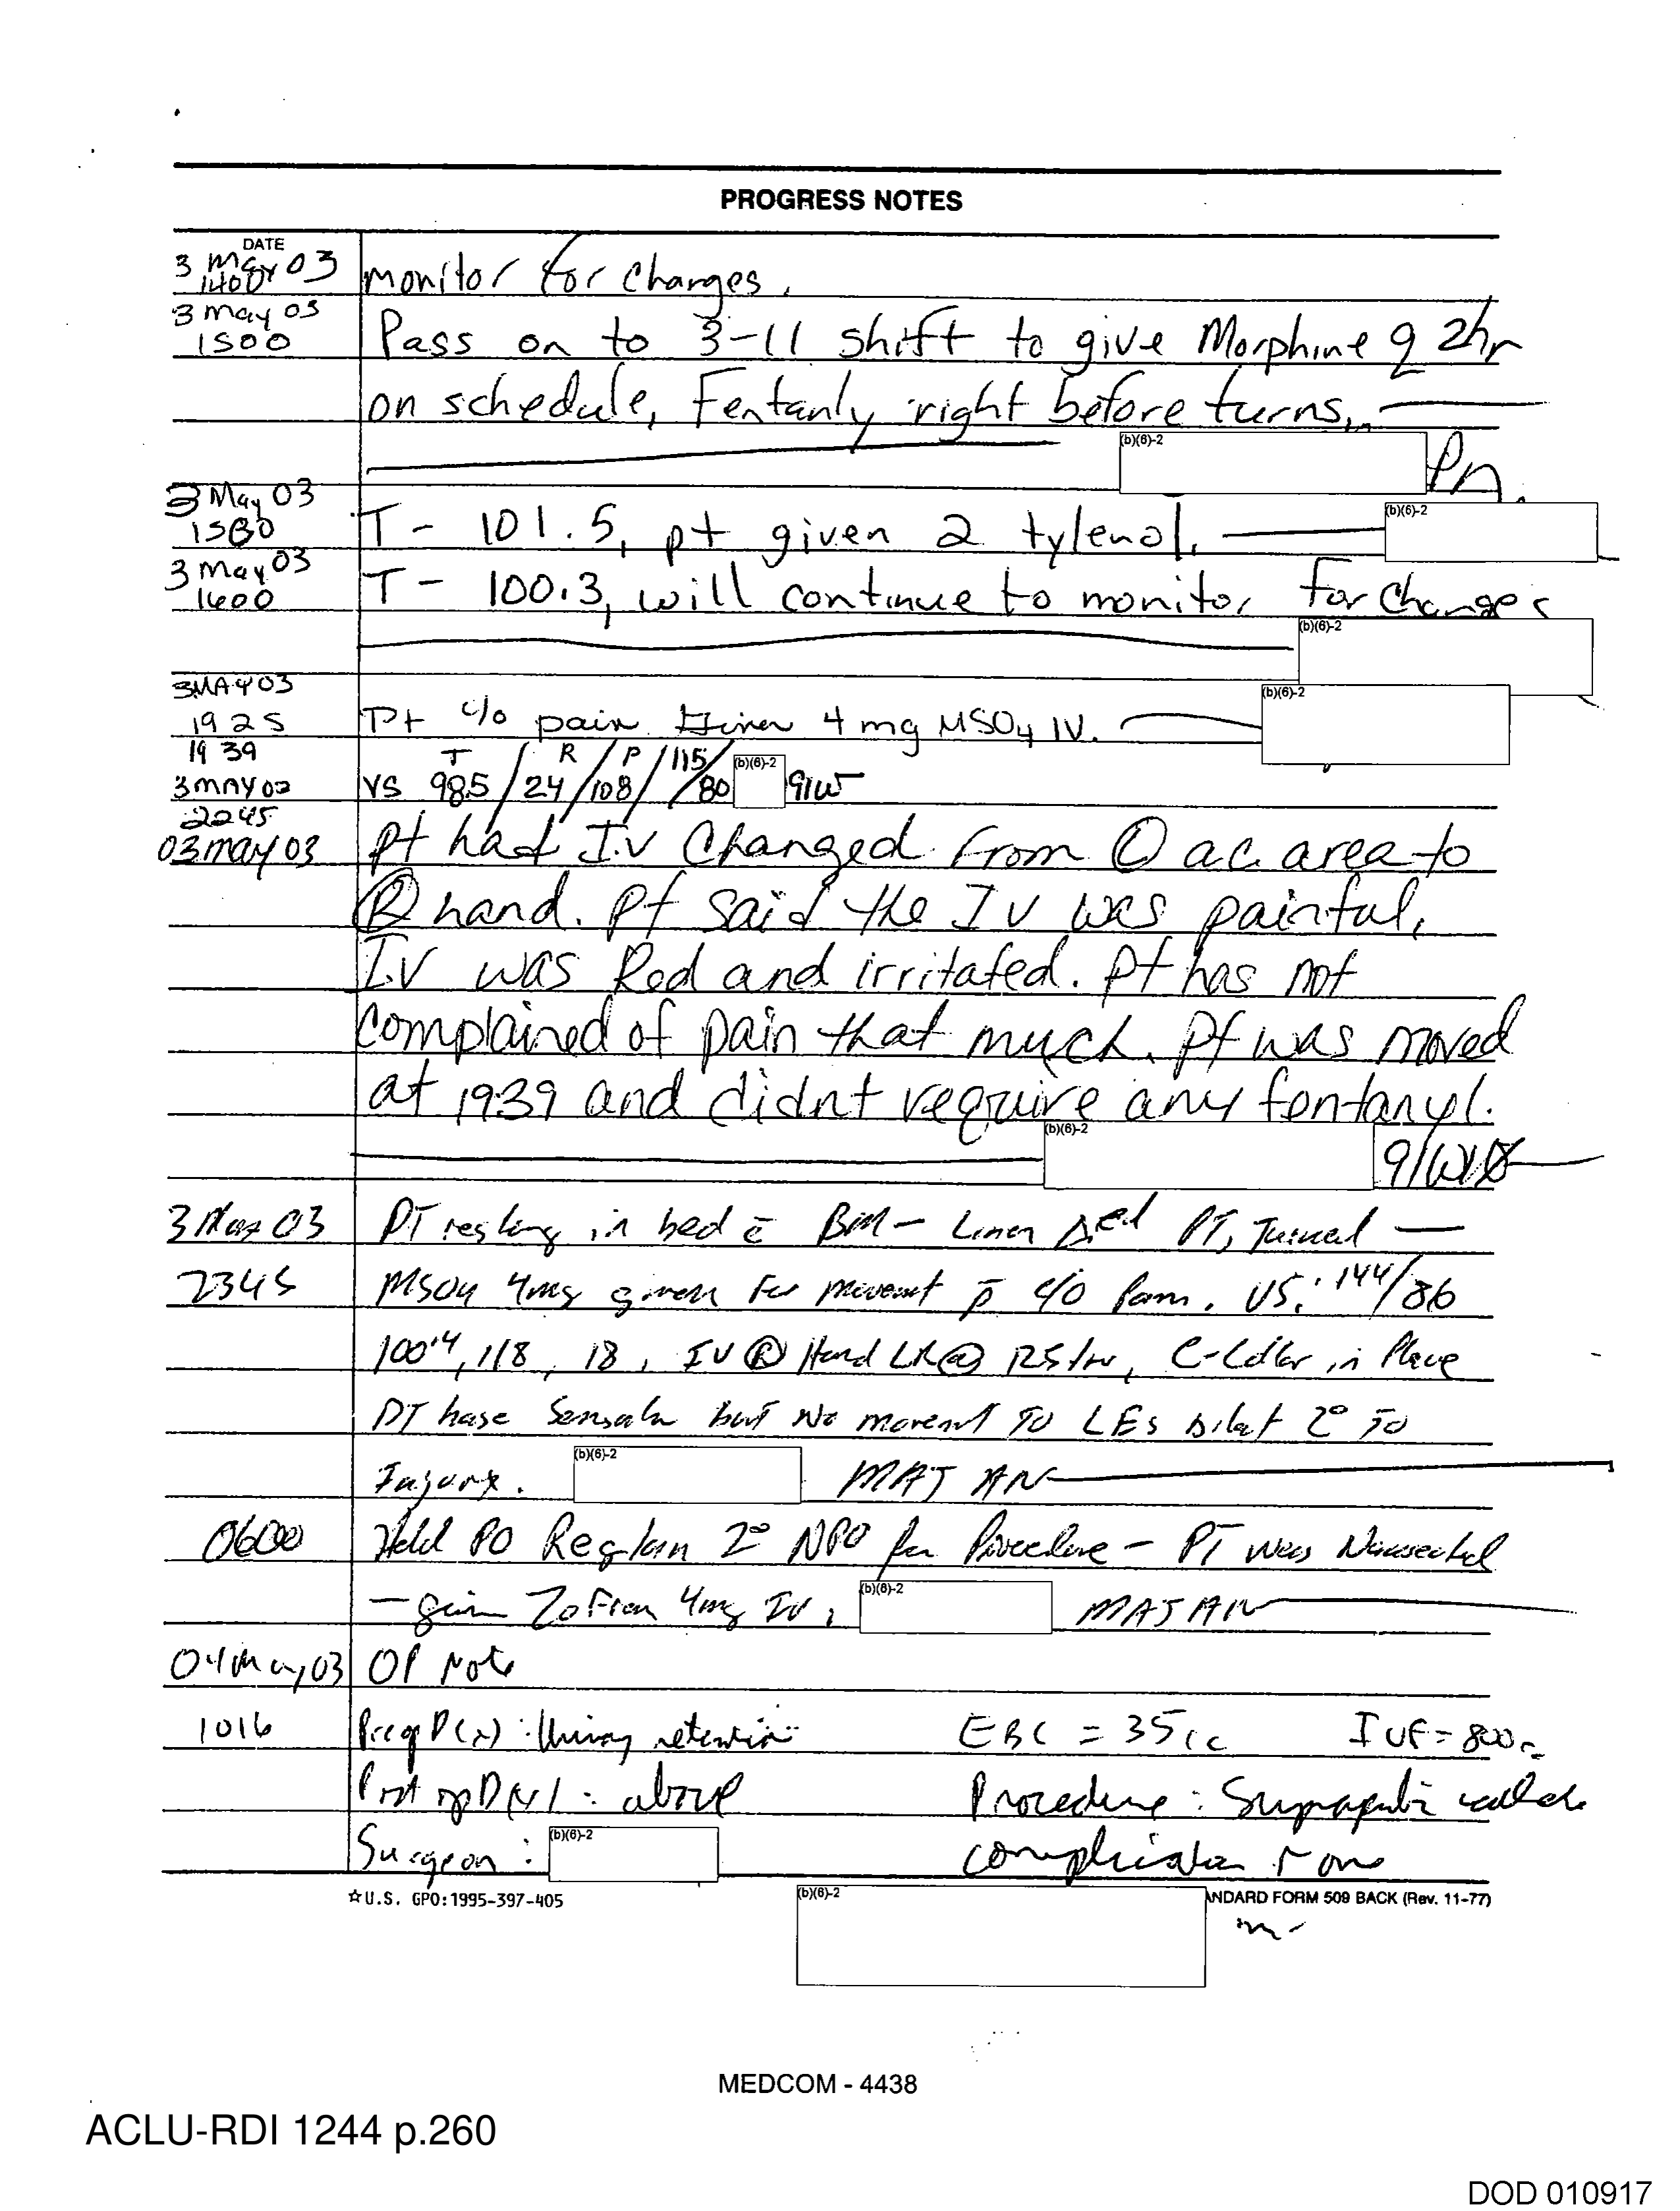 PROGRESS NOTES
DATE
3 May 03
1400
monitor for changes.
3 may 03
1500
Pass on to 3-11 shift to give Morphine q 2hr
on schedule, Fentanly right before turns.
(b)(6)-2
3 May 03
T- 101.5, pt given 2 tylenol.
(b)(6)-2
3 May 03
1600
T- 100.3, will continue to monitor for changes
(b)(6)-2
3MAY03
1925
Pt c/o pain Given 4 mg MSO4 IV.
(b)(6)-2
1939
3MAY03
T R P 115/
VS 985/24/108/ /80
(b)(6)-2
91W
2245
03may03
pt had I.V Changed from Ⓛ ac area to
Ⓡ hand. pt said the IV was painful,
I.V was Red and irritated. pt has not
complained of pain that much. pt was moved
at 1939 and didnt require any fentanyl.
(b)(6)-2
3 May 03
2345
PT resting in bed c̄ BM - Linen Δed PT, Turned
MSO4 4mg given for movement p̄ c/o Pain. VS: 144/86
100.4, 118, 18, IV Ⓡ Hand LR @ 125/hr, C-Collar in Place
PT hase Sensation but No movement TO LEs bilat 2° TO
Injury.
(b)(6)-2
MAJ AN
0600
Held PO Reglan 2° NPO for Procedure - PT was Nauseated
- given Zofran 4mg IV.
(b)(6)-2
MAJ AN
04 May 03
OP Note
1016
Preop D(x): Urinary retention
EBL = 35cc
IVF = 800
Post op D(x): above
Procedure: Suprapubic
Surgeon:
(b)(6)-2
complication none
☆U.S. GPO:1995-397-405
(b)(6)-2
ANDARD FORM 509 BACK (Rev. 11-77)
MEDCOM - 4438
ACLU-RDI 1244 p.260
DOD 010917